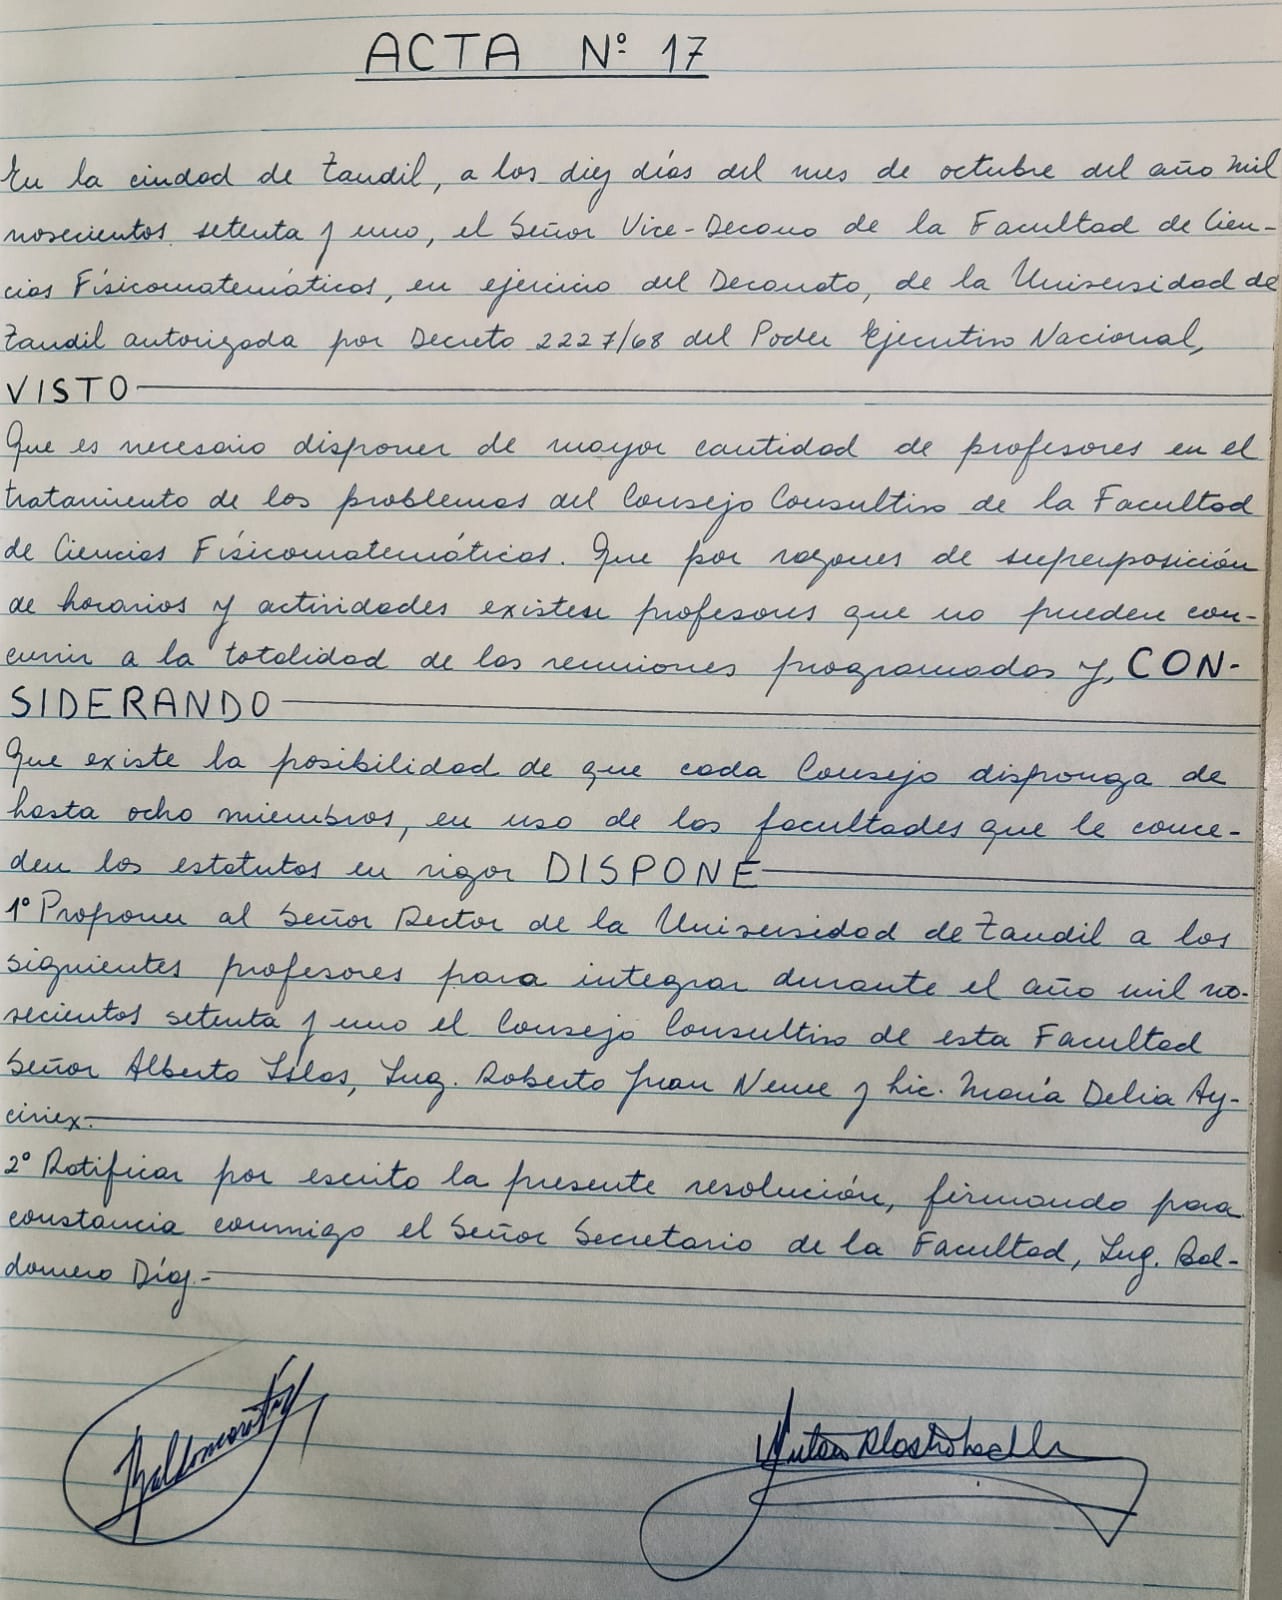 ACTA Nº 17
En la ciudad de Tandil, a los diez días del mes de octubre del año mil
novecientos setenta y uno, el Señor Vice-Decano de la Facultad de Cien-
cias Físicomatemáticas, en ejercicio del Decanato, de la Universidad de
Tandil autorizada por Decreto 2227/68 del Poder Ejecutivo Nacional,
VISTO
Que es necesario disponer de mayor cantidad de profesores en el
tratamiento de los problemas del Consejo Consultivo de la Facultad
de Ciencias Físicomatemáticas. Que por razones de superposición
de horarios y actividades existen profesores que no pueden con-
currir a la totalidad de las reuniones programadas y, CON-
SIDERANDO
Que existe la posibilidad de que cada Consejo disponga de
hasta ocho miembros, en uso de las facultades que le conce-
den los estatutos en vigor DISPONE
1º Proponer al Señor Rector de la Universidad de Tandil a los
siguientes profesores para integrar durante el año mil no-
vecientos setenta y uno el Consejo Consultivo de esta Facultad
Señor Alberto Islas, Ing. Roberto Juan Neme y Lic. María Delia Ay-
ciriex.-
2º Ratificar por escrito la presente resolución, firmando para
constancia conmigo el Señor Secretario de la Facultad, Ing. Bal-
domero Díaz.-